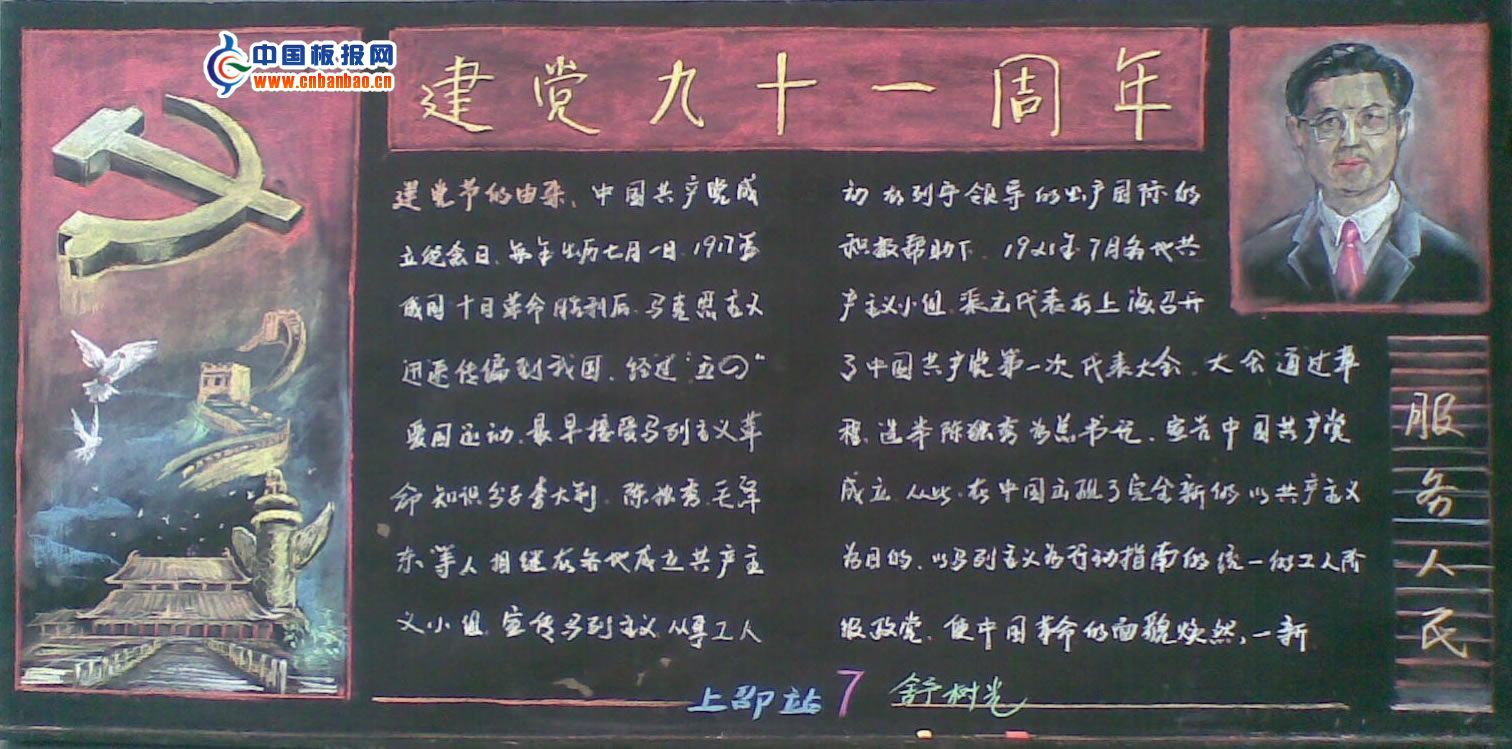 中国板报网
www.cnbanbao.cn
建党九十一周年
建党节的由来、中国共产党成
立纪念日、每年公历七月一日、1917年
俄国十月革命胜利后、马克思主义
迅速传遍到我国、经过"五四"
爱国运动、最早接受马列主义革
命知识分子李大钊、陈独秀、毛泽
东等人相继在各地成立共产主
义小组、宣传马列主义、从事工人
动 在列宁领导的共产国际的
积极帮助下、1921年7月各地共
产主义小组、派出代表在上海召开
了中国共产党第一次代表大会、大会通过章
程、选举陈独秀为总书记、宣告中国共产党
成立、从此、在中国出现了完全新的以共产主义
为目的、以马列主义为行动指南的统一的工人阶
级政党、使中国革命的面貌焕然、一新
服务人民
上邵站 7 舒树光